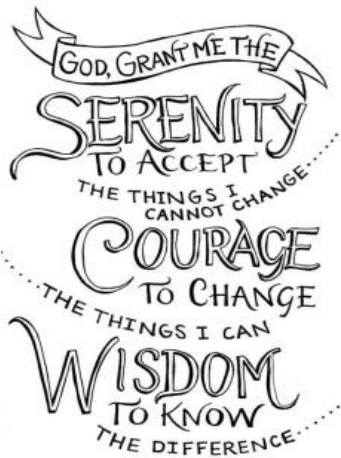 GOD, GRANT ME THE
SERENITY
TO ACCEPT
THE THINGS I
CANNOT CHANGE
COURAGE
TO CHANGE
THE THINGS I CAN
WISDOM
TO KNOW
THE DIFFERENCE